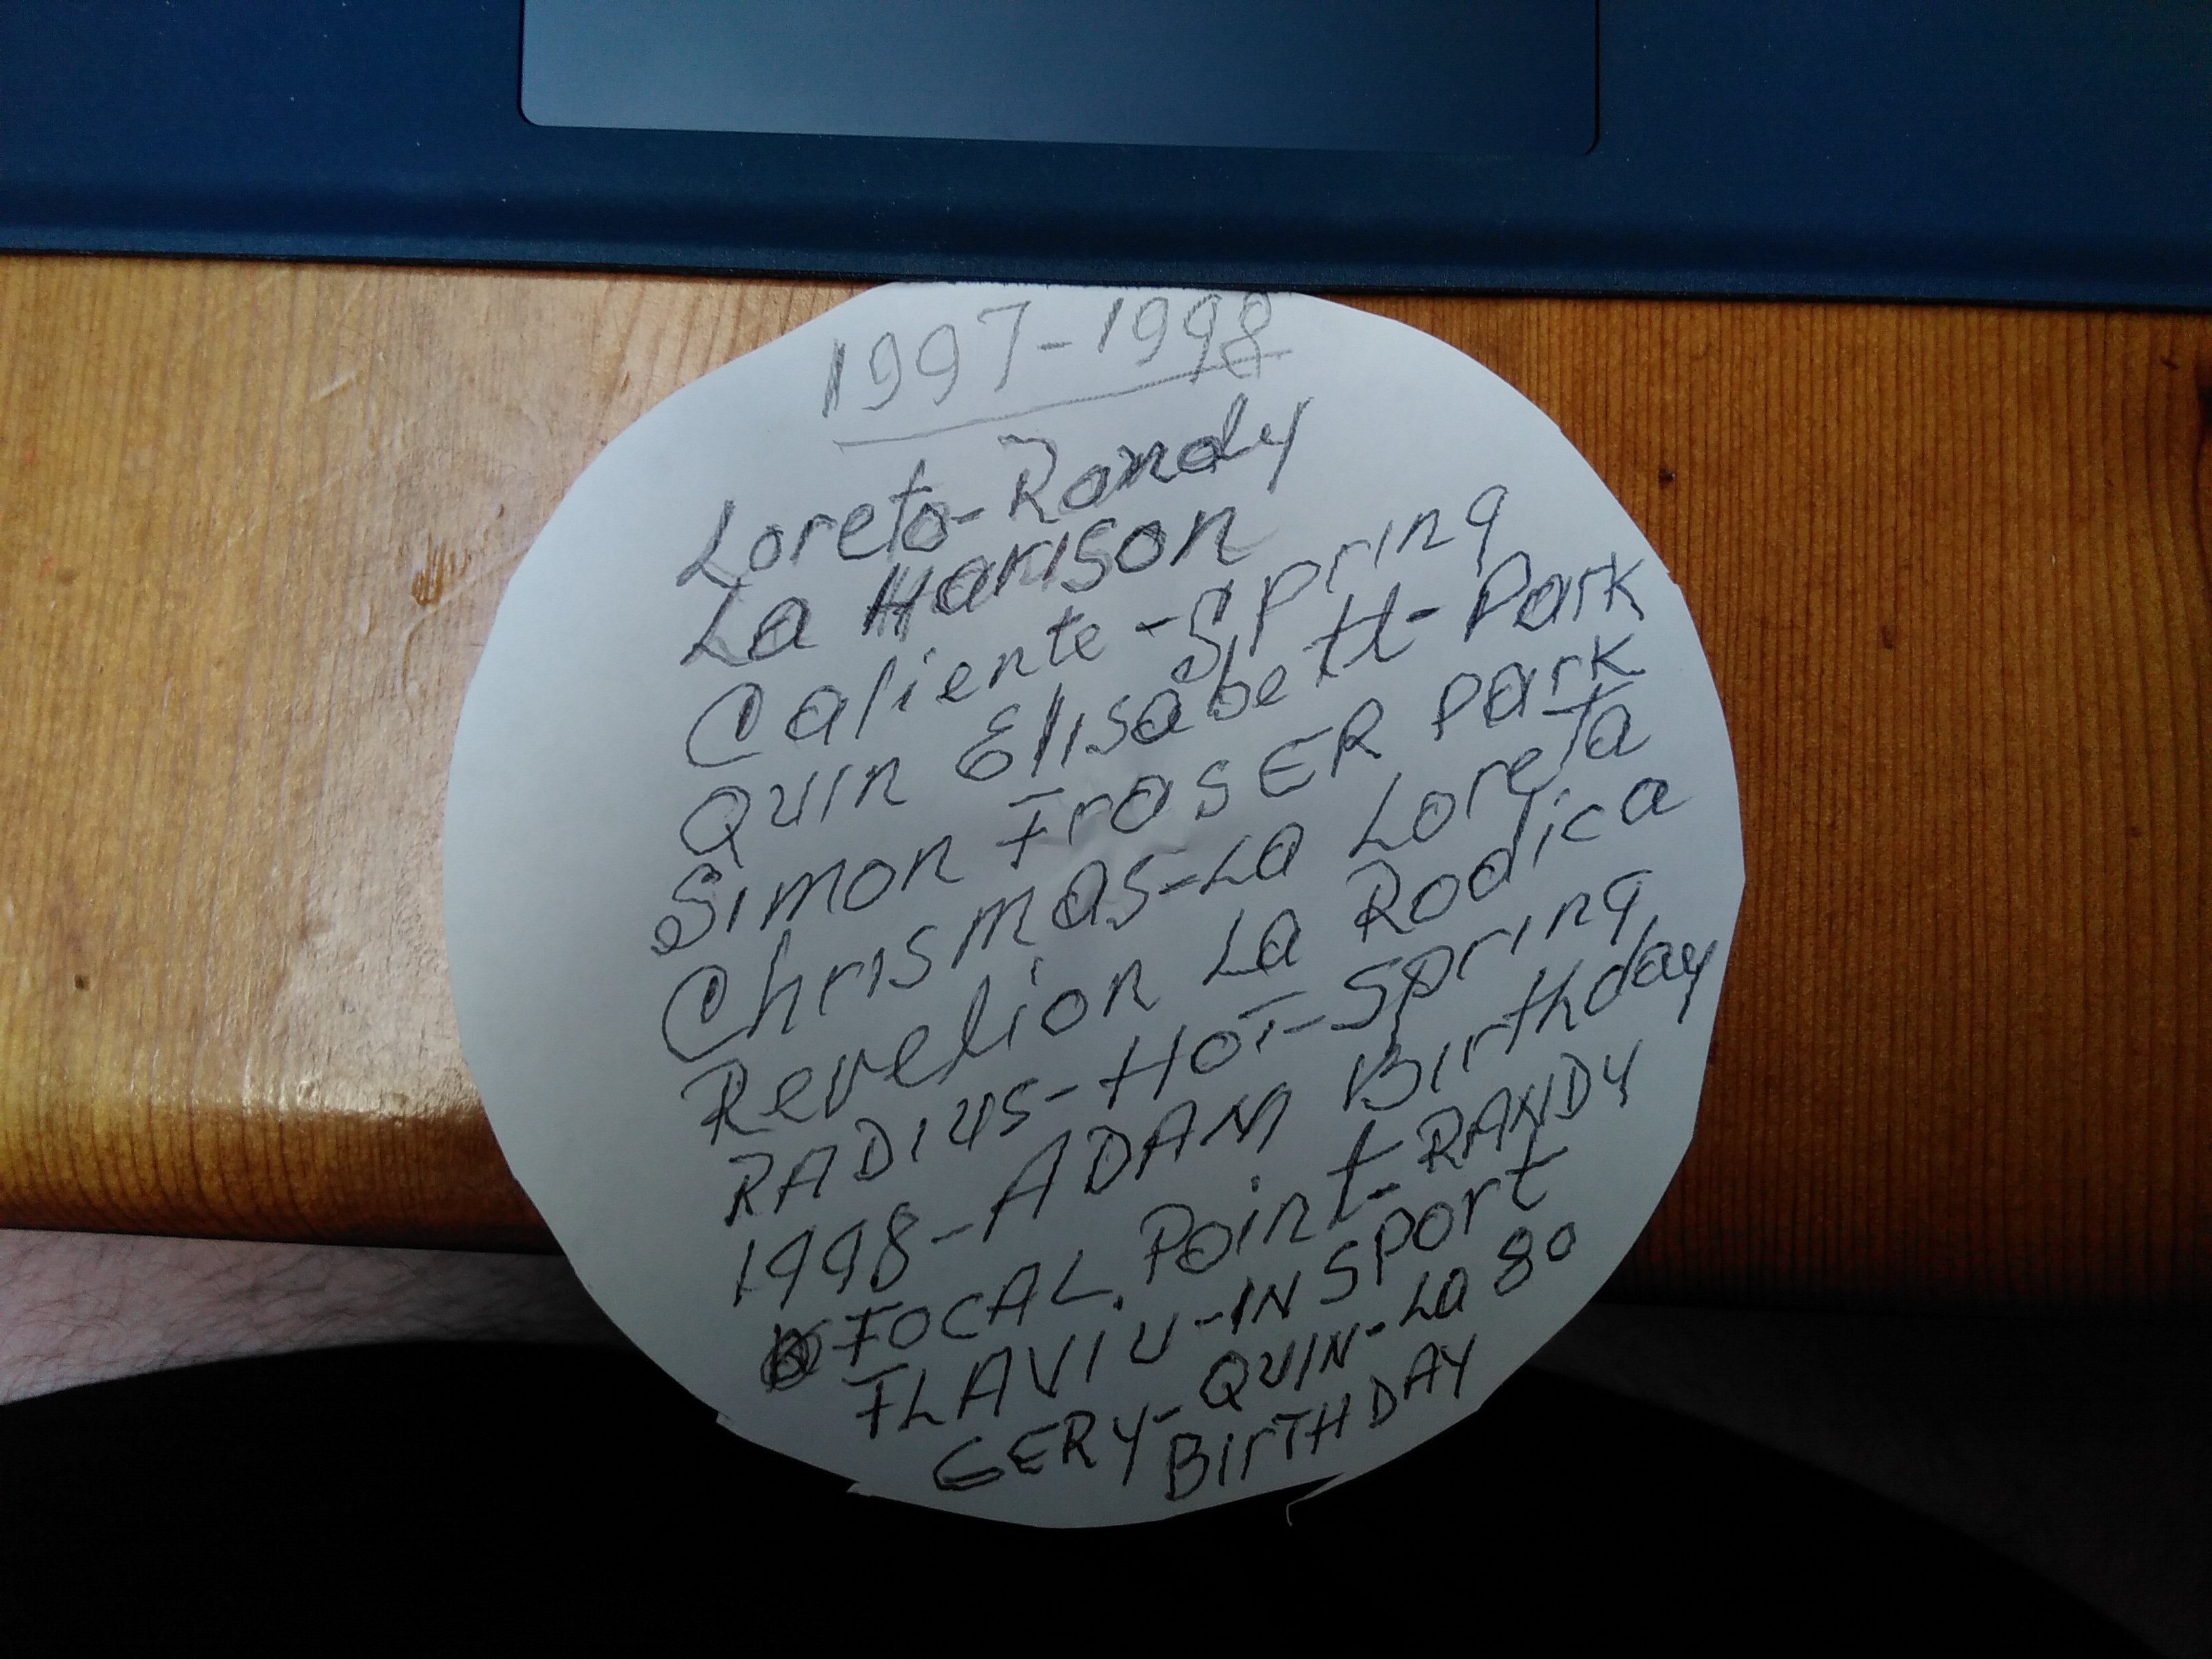 1997-1998
Loreto-Randy
La Harison
Caliente-Spring
Quin Elisabett-Park
Simon FrasER park
Chrismas-La Loreta
Revelion La Rodica
RADIUS-HOT-Spring
1998-ADAM Birthday
FOCAL.Point-RANDY
FLAVIU-IN Sport
GERY-QUIN-La 80
BirTHDAY